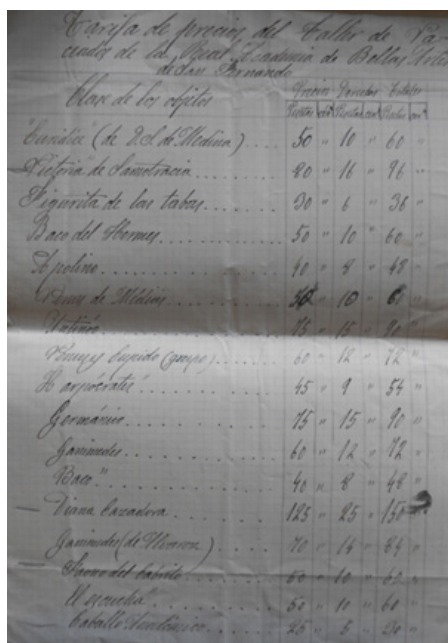 Tarifa de precios del taller de Va-
ciados de la Real Academia de Bellas Artes
de San Fernando
Clase de los objetos Precios Derechos Totales
Pesetas cts Pesetas cts Pesetas cts
"Euridice" (de D. S. de Medina) .... 50 " 10 " 60 "
"Victoria" de Samotracia ........ 80 " 16 " 96 "
Figurita de las tabas ........ 30 " 6 " 36 "
Baco del Hermes ............ 50 " 10 " 60 "
Apolino .............. 40 " 8 " 48 "
Venus de Médicis ........ 10 "
Antinóo ............ 75 " 15 " 90 "
Venus y Cupido (grupo) ....... 60 " 12 " 72 "
Harpócrates" ........... 45 " 9 " 54 "
Germánico .............. 75 " 15 " 90 "
Ganimedes ............. 60 " 12 " 72 "
Baco" .............. 40 " 8 " 48 "
Diana Cazadora ........... 125 " 25 " 150
Ganimedes (de ) .... 70 " 14 " 84 "
Fauno del Cabrito ........ 50 " 10 " 60 "
"El escucha" ............ 50 " 10 " 60 "
Caballo ........ 25 " 5 " 30 "